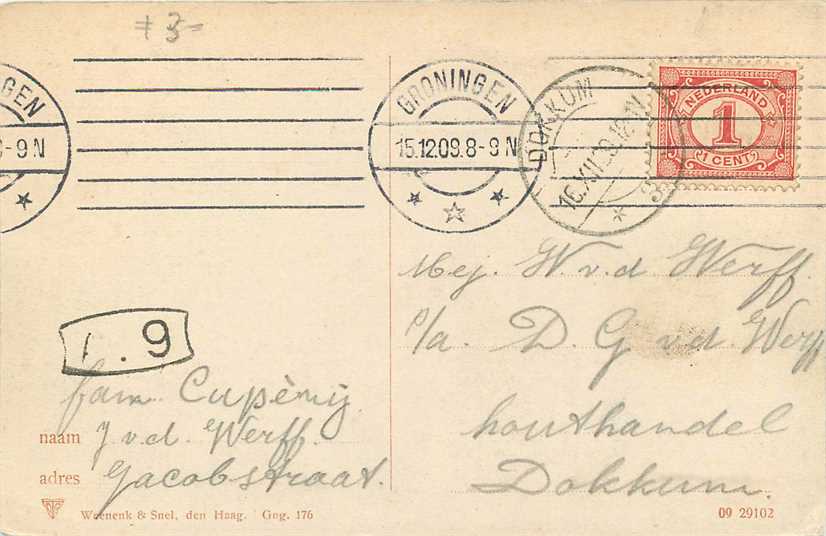 + 3-
GEN
8-9 N
GRONINGEN
15.12.09.8-9 N
DOKKUM
NEDERLAND
1
1 CENT
Mej. W. v. d Werff.
p/a. D. G v. d. Werff
houthandel
Dokkum.
. 9
fam
naam J. v. d. Werff.
adres Jacobstraat.
Weenenk & Snel, den Haag. Gng. 176
09 29102